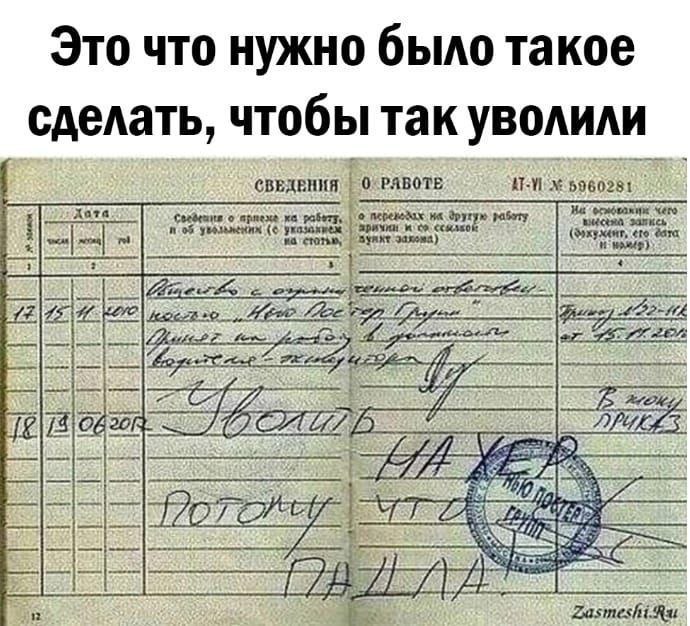 Это что нужно было такое
сделать, чтобы так уволили
СВЕДЕНИЯ О РАБОТЕ АТ-VI № 5960281
Дата
Сведения о приеме на работу, о переводах на другую работу
и об увольнении (с указанием причин и со ссылкой
на статью, пункт закона)
На основании чего
внесена запись
(документ, его дата
и номер)
число месяц год
1 2 3 4
Общество с ограниченной ответствен-
17 15 11 2010 ностью „Нью Постер Групп" Приказ №22-НК
Принят на работу в должности от 15.11.2010
водителя-экспедитора
18 19 06 2017 Уволить В жопу
ПРИКАЗ
НАХЕР
Потому ЧТО
ПАДЛА
НЬЮ ПОСТЕР
ГРУПП
12
ZasmeshiRu